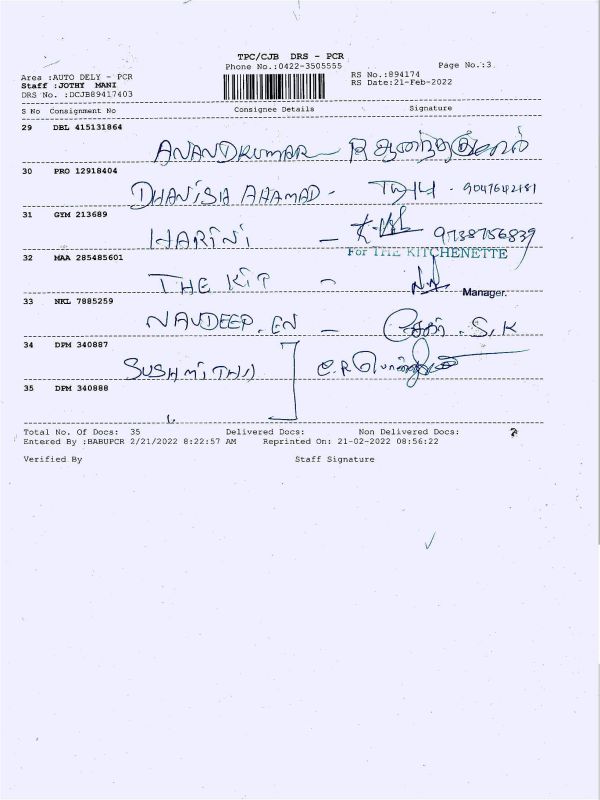 TPC/CJB DRS - PCR
Phone No.:0422-3505555
Page No.:3
Area :AUTO DELY - PCR
Staff :JOTHY MANI
DRS No. :DCJB89417403
RS No.:894174
RS Date:21-Feb-2022
S No Consignment No Consignee Details Signature
29 DBL 415131864
ANANDKUMAR R ஆனந்தகுமார்
30 PRO 12918404
DHANISH AHAMAD - 9047642181
31 GYM 213689
HARINI - 9738756839
For THE KITCHENETTE
32 MAA 285485601
THE KIT -
Manager.
33 NKL 7885259
NAVDEEP. EN - S.K
34 DPM 340887
SUSHMITHA
35 DPM 340888
Total No. Of Docs: 35 Delivered Docs: Non Delivered Docs:
Entered By :BABUPCR 2/21/2022 8:22:57 AM Reprinted On: 21-02-2022 08:56:22
Verified By Staff Signature